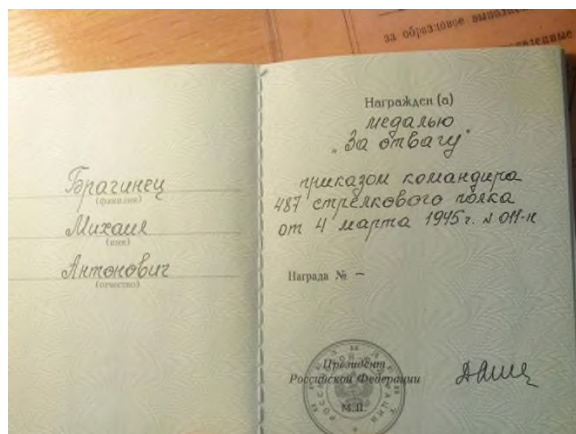 за образцовое
Гарагинец
(фамилия)
Михаил
(имя)
Антонович
(отчество)
Награжден (а)
медалью
„За отвагу"
приказом командира
487 стрелкового полка
от 4 марта 1945 г. № 011-н
Награда № –
Президент
Российской Федерации
М.П.